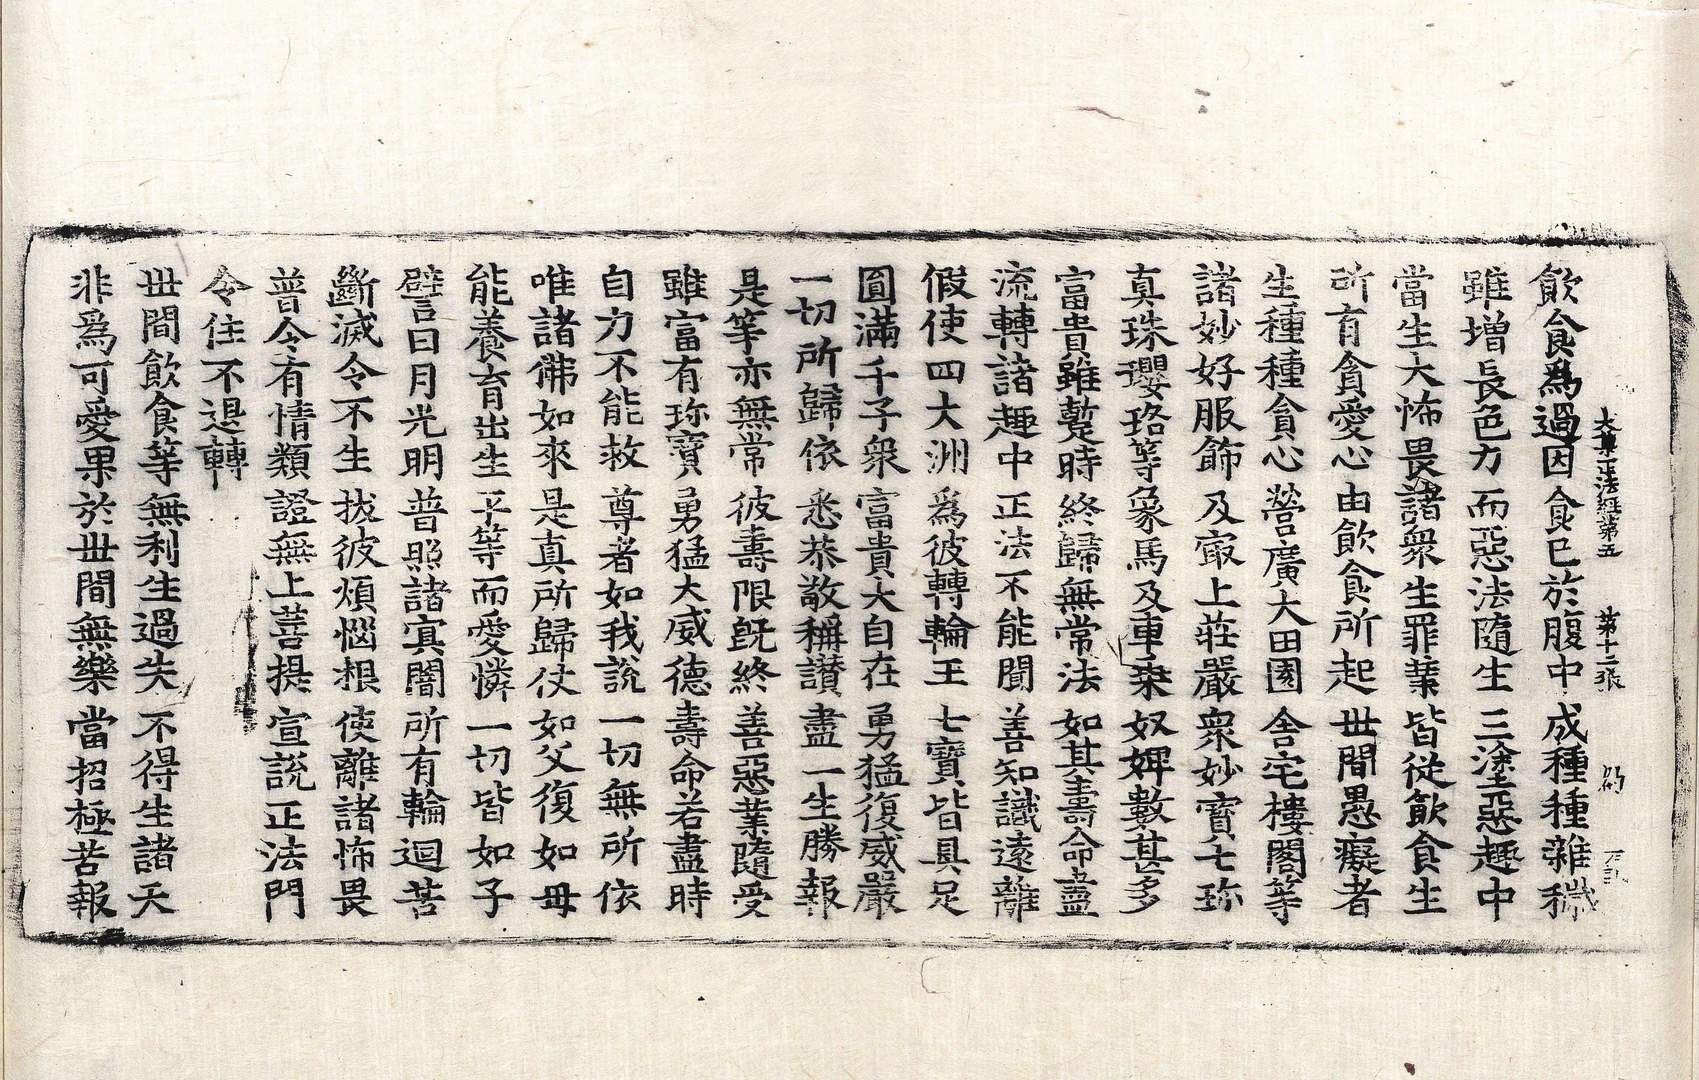 大乘正法經第五 第十二張
飮食爲過因食已於腹中成種種雜穢
雖增長色力而惡法隨生三塗惡趣中
當生大怖畏諸衆生罪業皆從飮食生
所有貪愛心由飮食所起世間愚癡者
生種種貪心營廣大田園舍宅樓閣等
諸妙好服飾及㝡上莊嚴衆妙寶七珎
真珠瓔珞等象馬及車乗奴婢數甚多
富貴雖蹔時終歸無常法如其壽命盡
流轉諸趣中正法不能聞善知識遠離
假使四大洲爲彼轉輪王七寶皆具足
圓滿千子衆富貴大自在勇猛復威嚴
一切所歸依悉恭敬稱讃盡一生勝報
是等亦無常彼壽限旣終善惡業隨受
雖富有珎寶勇猛大威德壽命若盡時
自力不能救尊者如我說一切無所依
唯諸佛如來是真所歸仗如父復如母
能養育出生平等而愛憐一切皆如子
譬日月光明普照諸㝠闇所有輪迴苦
斷滅令不生拔彼煩惱根使離諸怖畏
普令有情類證無上菩提宣說正法門
令住不退轉
世間飮食等無利生過失不得生諸天
非爲可愛果於世間無樂當招極苦報